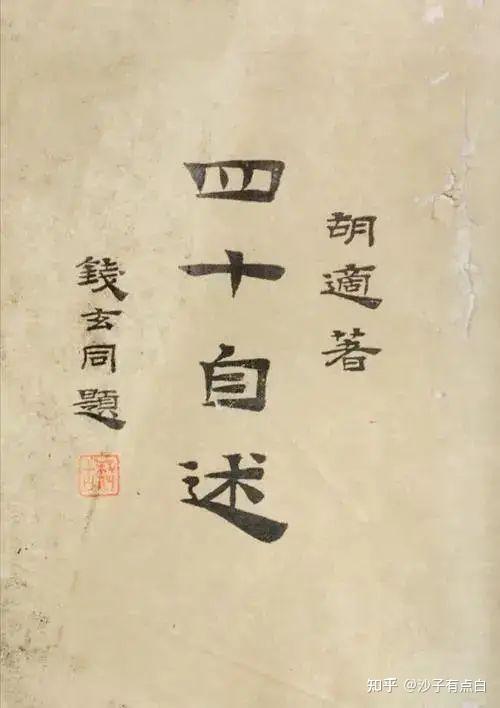 胡適著
四十自述
錢玄同題
知乎 @沙子有点白